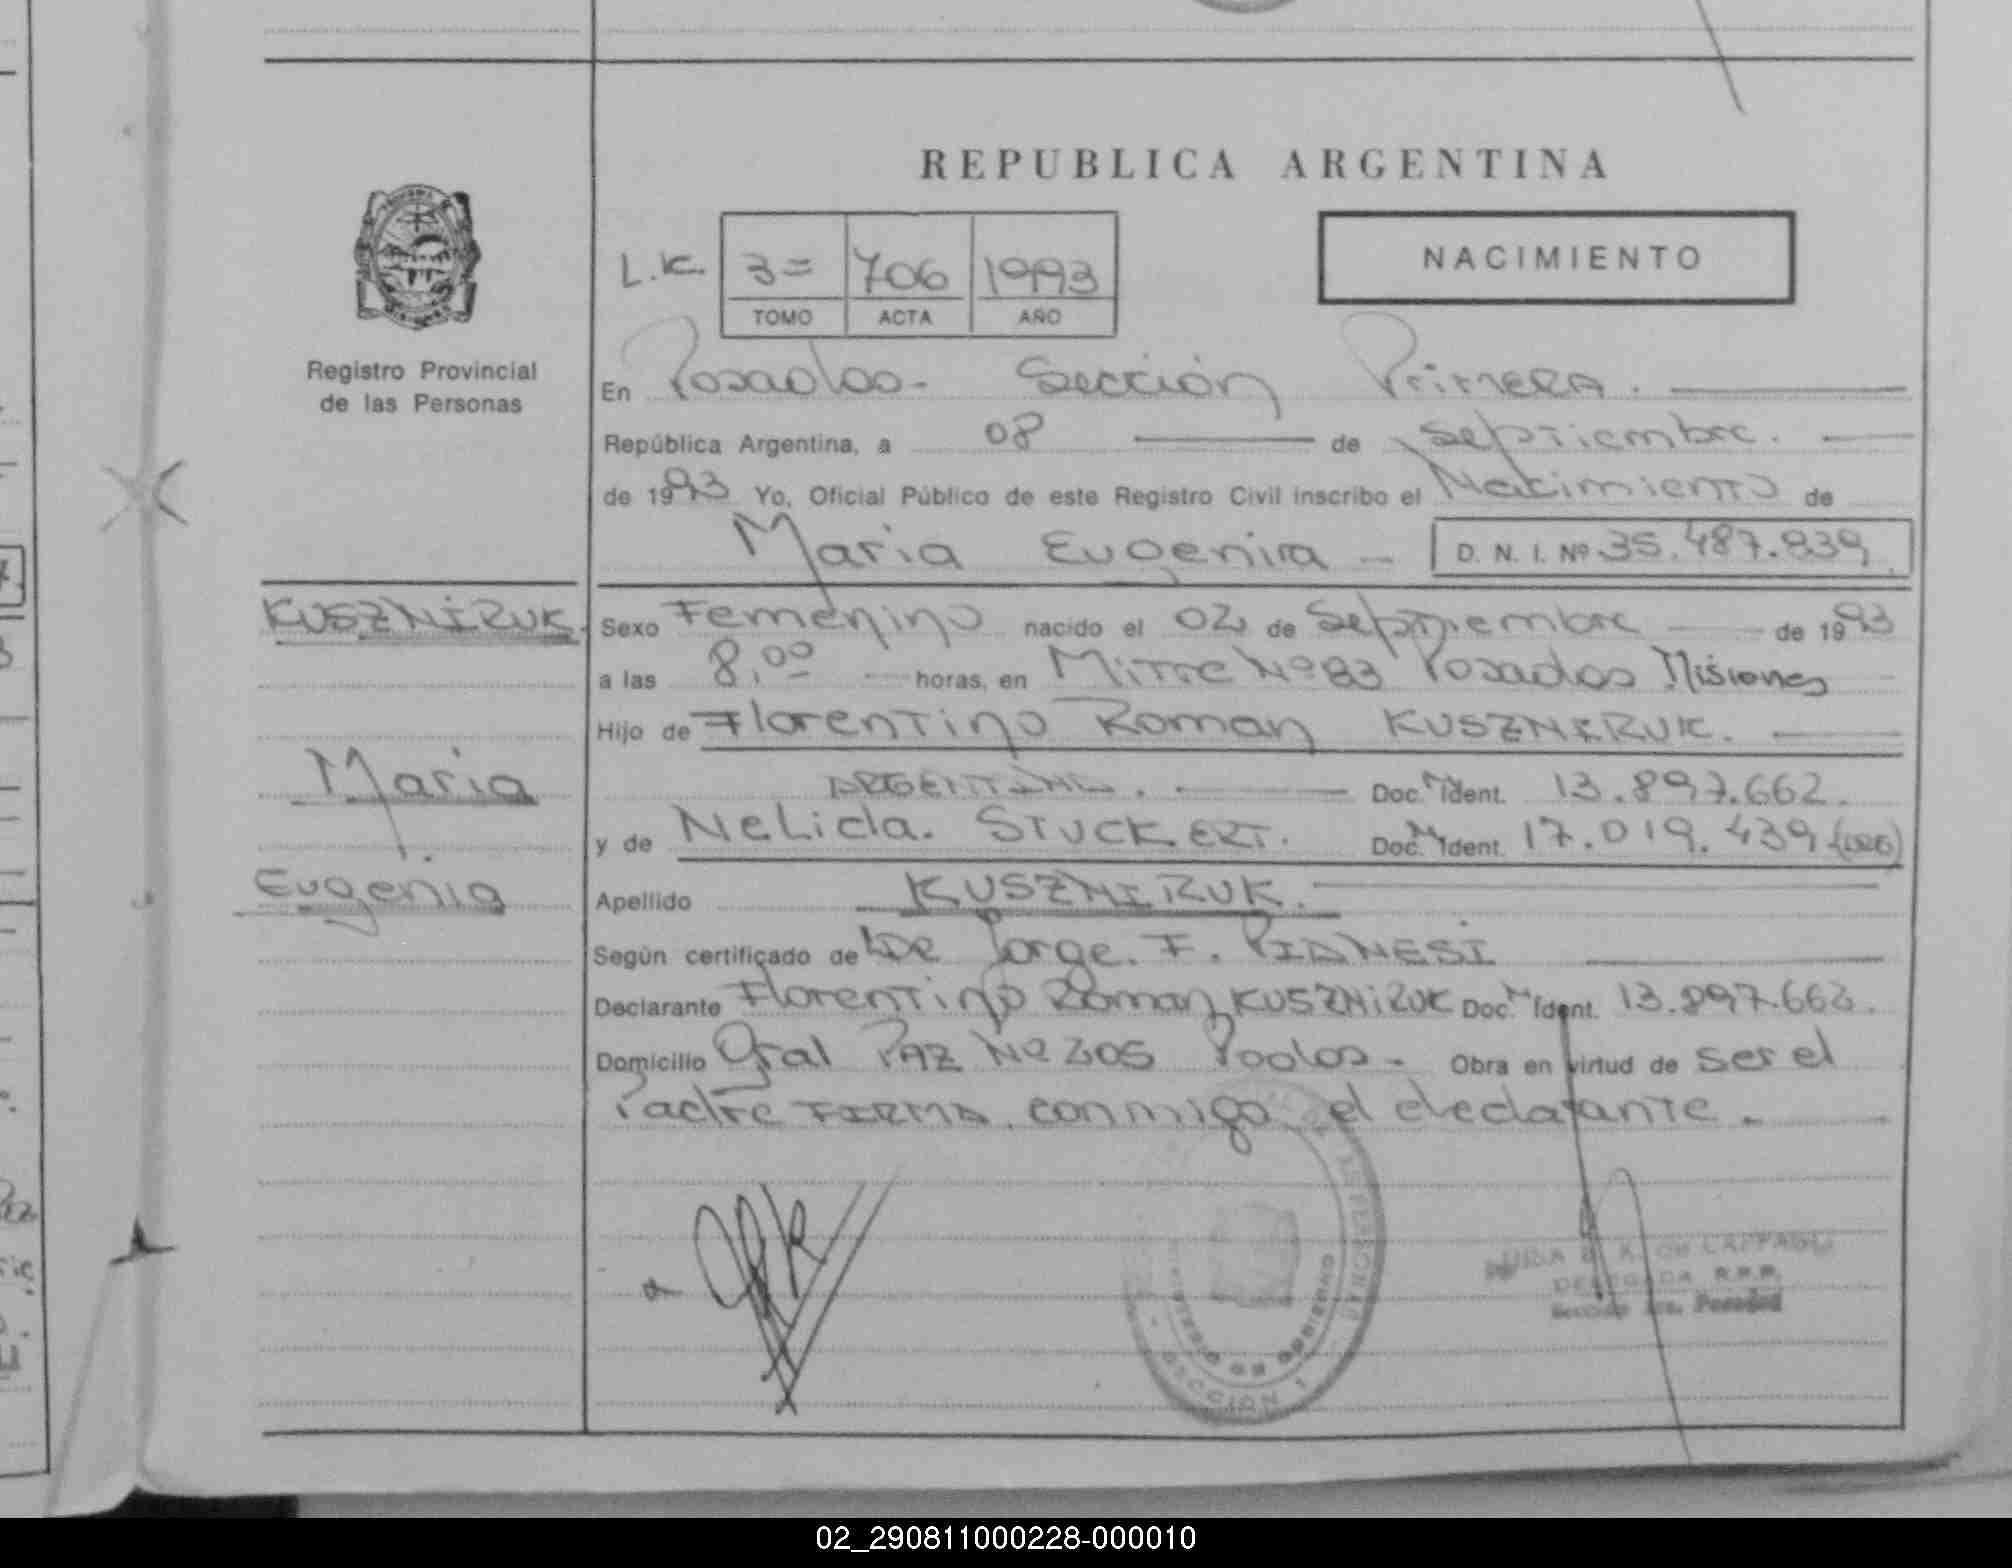 REPUBLICA ARGENTINA
NACIMIENTO
L.K. 3= 706 1993
TOMO ACTA AÑO
Registro Provincial
de las Personas
En Posadas - Sección Primera.
República Argentina, a 08 de Septiembre.
de 1993 Yo, Oficial Público de este Registro Civil inscribo el Nacimiento de
Maria Eugenia - D. N. I. Nº 35.487.839
KUSZNIRUK.
Sexo Femenino nacido el 02 de Septiembre de 1993
a las 8,00 horas, en Mitre Nº 83 Posadas Misiones
Hijo de Florentino Roman KUSZNIRUK.
Maria
ARGENTINA. Doc. Ident. 13.897.662.
y de Nelida. STUCKERT. Doc. Ident. 17.019.439 (ARG)
Eugenia
Apellido KUSZNIRUK.
Según certificado de Jorge. F. PIANESI
Declarante Florentino Roman KUSZNIRUK Doc. Ident. 13.897.662.
Domicilio Gral PAZ Nº 205 Pdas. Obra en virtud de ser el
Padre FIRMA conmigo el declarante.
MINISTERIO DE GOBIERNO
SECCION 1
K. de
DELEGADA R.P.P.
Sección 1ra. Posadas
02_290811000228-000010